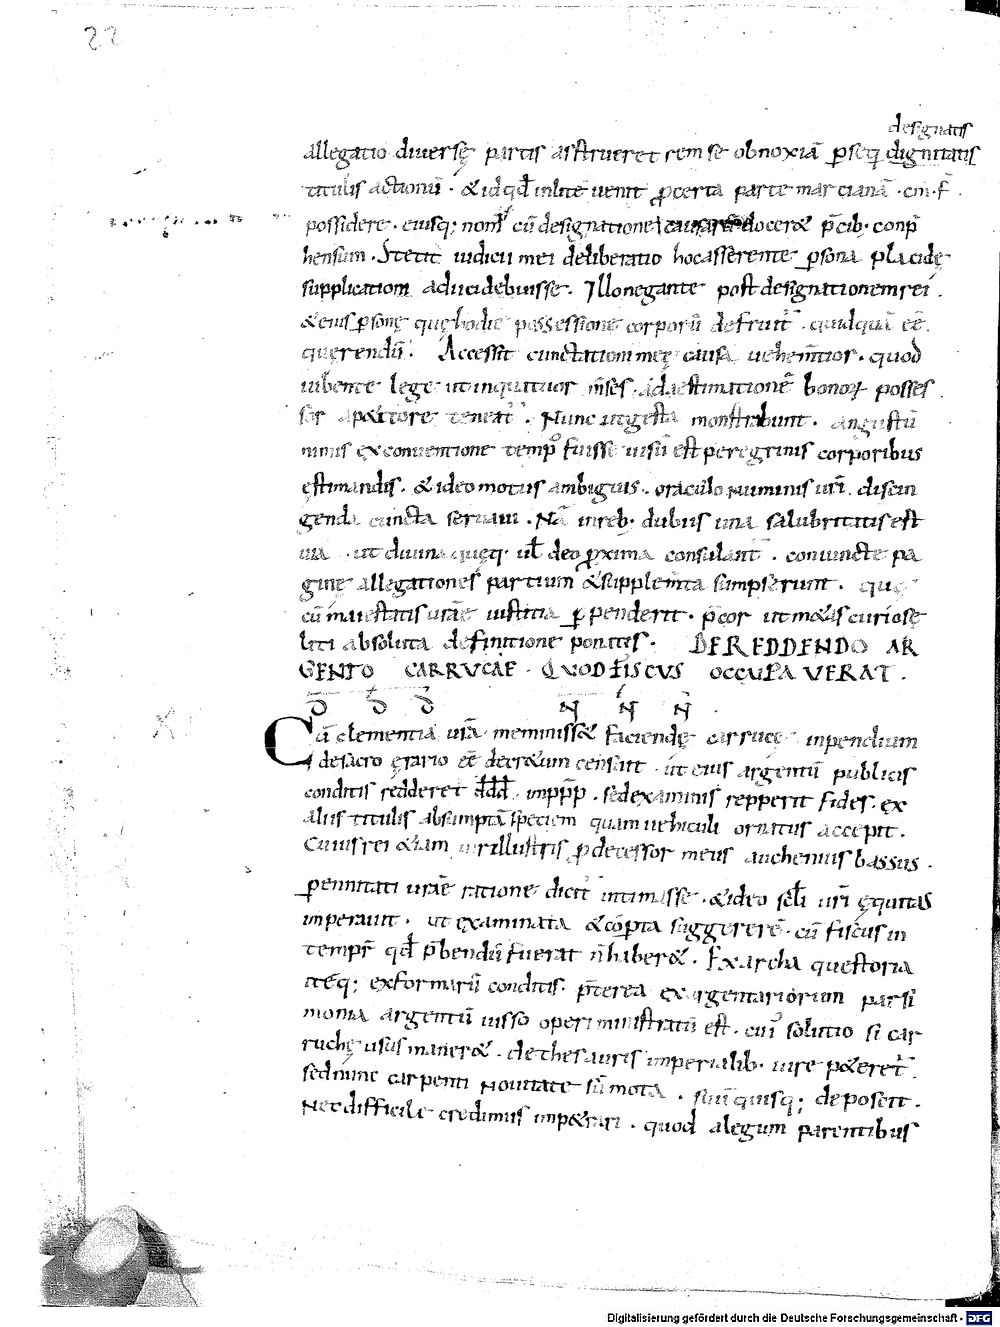 22
designatis
allegatio diuersę partis astrueret rem se obnoxiā ꝑseq dignitatis
titulis actionū · & id qđ in lite uenit ꝓ certa parte marcianā · cm · f̄ ·
possidere · eiusq; non cū designatione docer& p̄cib; conp̄
hensum · Stetit iudicii mei deliberatio hoc asserente ꝑsona placidę
supplicationi adiici debuisse · Illo negante post designationem rei ·
& eius ꝑsonę quę hodie possessione corporū defruit̄ · quidquā eē ·
querendū · Accessit cunctationi meę causa uehem̄tior · quod
iubente lege ut inquattuor m̄ses ad aestimationē bonoꝝ posses
sor a p&itore teneat̄ · Nunc ut gesta monstrabunt · angustū
nimis ex conuentione temp̄ fuisse uisū est peregrinis corporibus
ęstimandis · & ideo motus ambiguis · oraculo numinis ur̄i · discin
genda cuncta seruaui · Nā in reb; dubiis una salubritatis est
uia · ut diuina quęq; ul̄ deo ꝓxima consulant̄ · coniunctę pa
ginę allegationes partium & supplem̄ta sumpserunt · quę
cū maiestatis ur̄ae iustitia ꝑpenderit · p̄cor ut m&as curiosę
liti absoluta definitione ponatis · DE REDDENDO AR
GENTO CARRUCAE · QUOD FISCUS OCCUPAUERAT ·
D̄ D̄ D̄ N̄ N̄ N̄
Cū clementia ur̄a meminiss& faciendę carrucę inpendium
de sacro ęrario eē decr&um censuit · ut eius argentū publicis
conditis redderet ddd̄ · imppp̄ · sed examinis repperit fides · ex
aliis titulis absumptā speciem quam uehiculi ornatus accepit ·
Cuius rei &iam uir illustris ꝓdecessor meus auchenius bassus ·
ꝑennitati ur̄ae ratione dicit̄ intimasse · & ideo scl̄i ur̄i ęquitas
imperauit · ut examinata & cōperta suggererē · cū fiscus in
tempr̄ qđ p̄bendū fuerat n̄ haber& · Ex archa questoria
itēq; ex formarū conditis · p̄terea ex argentariorum parsi
monia argentū iusso operi ministratū est · cui solutio si car
ruchę usus maner& · de thesauris imperialib; iure p&eret̄ ·
sed nunc carpenti nouitate sūmota · suū quisq; deposcit ·
Nec difficile credimus imp&rari · quod a legum parentibus
Digitalisierung gefördert durch die Deutsche Forschungsgemeinschaft - DFG